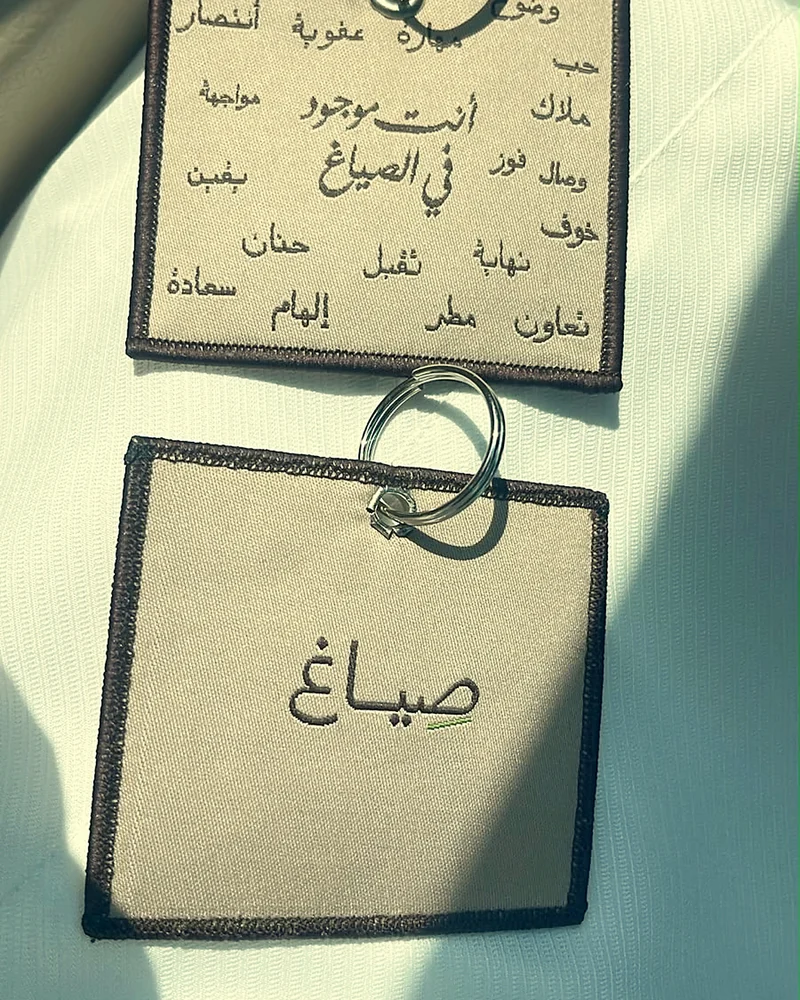 وضوح
أنتصار عفوية مهارة
حب
مواجهة أنت موجود ملاك
في الصياغ فوز وصال
يقين
خوف
حنان تقبل نهاية
سعادة إلهام مطر تعاون
صِياغ